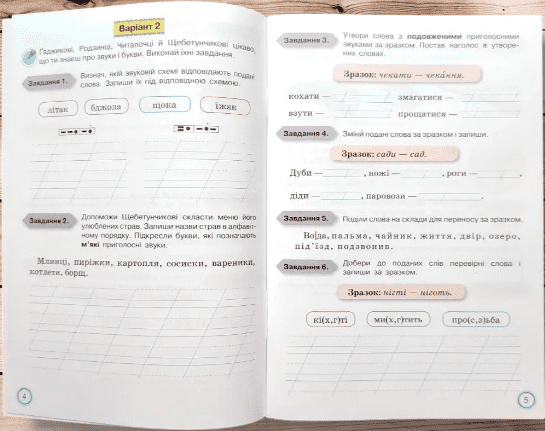 Варіант 2
Ґаджикові, Родзинці, Читалочці й Щебетунчикові цікаво,
що ти знаєш про звуки і букви. Виконай їхні завдання.
Завдання 1. Визнач, якій звуковій схемі відповідають подані
слова. Запиши їх під відповідною схемою.
літак бджола щока їжак
Завдання 2. Допоможи Щебетунчикові скласти меню його
улюблених страв. Запиши назви страв в алфавіт-
ному порядку. Підкресли букви, які позначають
м'які приголосні звуки.
Млинці, пиріжки, картопля, сосиски, вареники,
котлети, борщ.
4
Завдання 3. Утвори слова з подовженими приголосними
звуками за зразком. Постав наголос в утворе-
них словах.
Зразок: чекати — чека́ння.
кохати — змагатися —
взути — прощатися —
Завдання 4. Зміни подані слова за зразком і запиши.
Зразок: сади — сад.
Дуби — , ножі — , роги — ,
діди — , паровози — .
Завдання 5. Поділи слова на склади для переносу за зразком.
Во|да, пальма, чайник, життя, двір, озеро,
під'їзд, подзвонив.
Завдання 6. Добери до поданих слів перевірні слова і
запиши за зразком.
Зразок: нігті — ніготь.
кі(х,г)ті ми(х,г)тить про(с,з)ьба
5